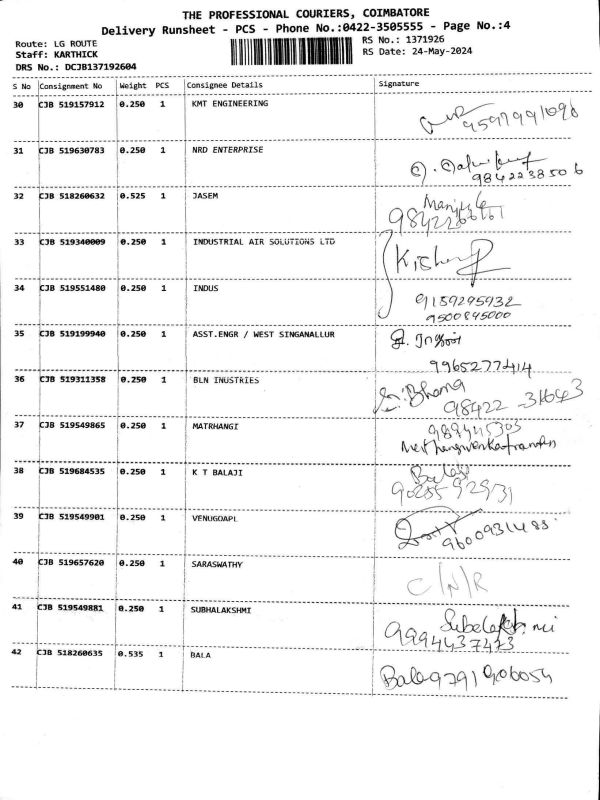 THE PROFESSIONAL COURIERS, COIMBATORE
Delivery Runsheet - PCS - Phone No.:0422-3505555 - Page No.:4
Route: LG ROUTE
Staff: KARTHICK
DRS No.: DCJB137192604
RS No.: 1371926
RS Date: 24-May-2024
S No Consignment No Weight PCS Consignee Details Signature
30 CJB 519157912 0.250 1 KMT ENGINEERING
31 CJB 519630783 0.250 1 NRD ENTERPRISE
9842238506
32 CJB 518260632 0.525 1 JASEM
33 CJB 519340009 0.250 1 INDUSTRIAL AIR SOLUTIONS LTD
34 CJB 519551480 0.250 1 INDUS
9159295932
9500845000
35 CJB 519199940 0.250 1 ASST.ENGR / WEST SINGANALLUR
9965277414
36 CJB 519311358 0.250 1 BLN INUSTRIES
98422-31643
37 CJB 519549865 0.250 1 MATRHANGI
38 CJB 519684535 0.250 1 K T BALAJI
39 CJB 519549901 0.250 1 VENUGOAPL
9600931488
40 CJB 519657620 0.250 1 SARASWATHY
C/N/R
41 CJB 519549881 0.250 1 SUBHALAKSHMI
9994437473
42 CJB 518260635 0.535 1 BALA
Bala 9791906054